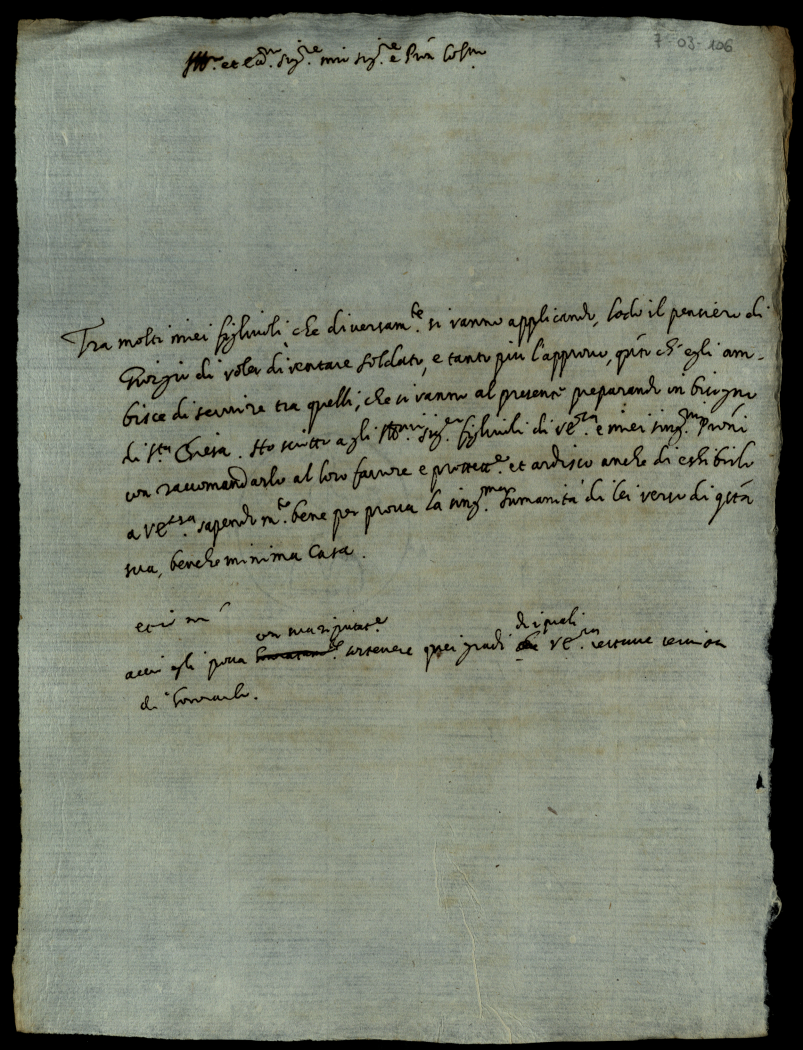 7-03-106
Ill.re et Ecc.mo Sig.re mio sig.re e Pron Col.mo
Tra molti miei figliuoli, che diversam.te si vanno applicando, lodo il pensiero di
Giorgio di voler diventare soldato, e tanto più l'approvo, q.to ch'egli am-
bisce di servire tra quelli, che si vanno al presente preparando in bisogno
di S.ta Chiesa. Ho scritto agli Ill.mi Sig.ri figliuoli di V.E. e miei sing.mi Proni
con raccomandarlo al loro favore e protett.e et ardisco anche di esibirlo
a V.E. sapendo m.to bene per prova la sing.ma humanità di lei verso di q.sta
sua, benche minima Casa.
con sua riputat.e di i quali
acciò egli possa sostenere quei gradi V.E. restasse servita
di honorarlo.